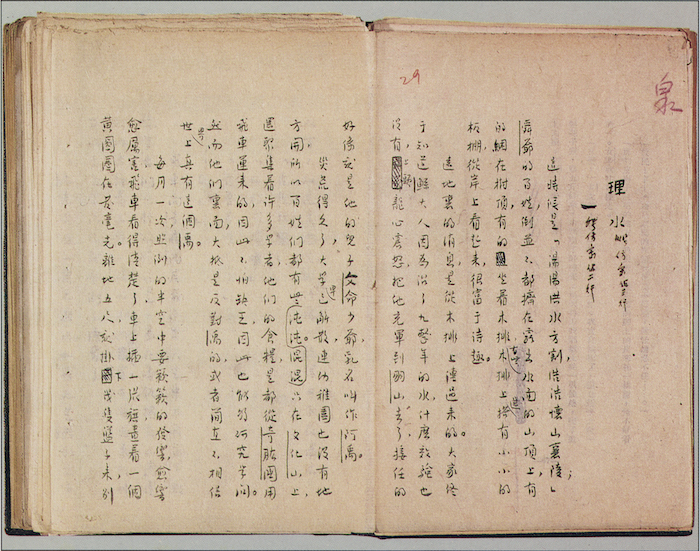 泉
29
理水
一
這時候是「湯湯洪水方割,浩浩懷山襄陵」;
舜爺的百姓,倒並不都擠在露出水面的山頂上,有
的綑在樹頂,有的坐着木排,有些木排上還搭有小小的
板棚,從岸上看起來,很富于詩趣。
遠地裏的消息,是從木排上傳過來的。大家終
于知道鯀大人因爲治了九整年的水,什麽效驗也
沒有,上頭龍心震怒,把他充軍到羽山去了,接任的
好像就是他的兒子文命少爺,乳名叫作阿禹。
災荒得久了,大學早已解散,連幼稚園也沒有地
方開,所以百姓們都有些混混沌沌。只在文化山上,
還聚集着許多學者,他們的食糧,是都從奇肱國用
飛車運來的,因此不怕缺乏,因此也能夠研究學問。
然而他們裏面,大抵是反對禹的,或者簡直不相信
世上真有這個禹。
每月一次,照例的半空中要簌簌的發響,愈響
愈厲害,飛車看得清楚了,車上插一張旗,畫着一個
黃圓圈在發毫光。離地五尺,就掛下幾隻籃子來,別